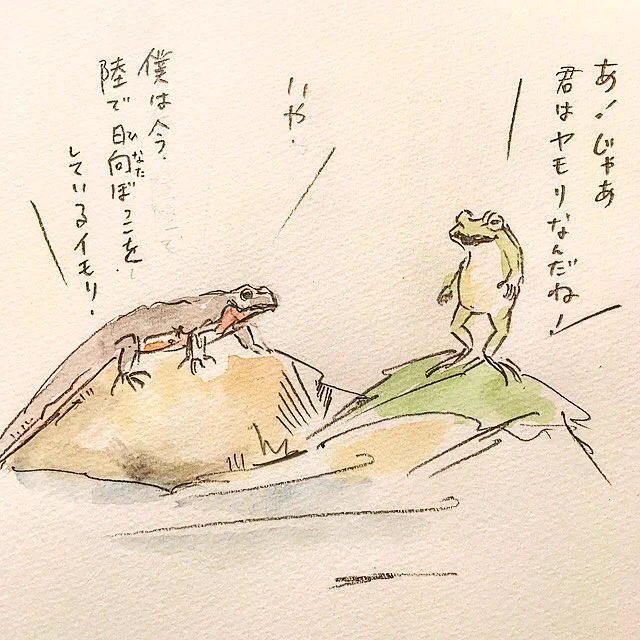 あ！じゃあ
君はヤモリなんだね！
いや．
僕は今．
陸で日向ぼっこを．
ひなた
しているイモリ．